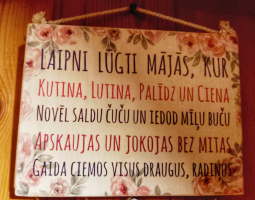 LAIPNI LŪGTI MĀJĀS, KUR
KUTINA, LUTINA, PALĪDZ UN CIENA
NOVĒL SALDU ČUČU UN IEDOD MĪĻU BUČU
APSKAUJAS UN JOKOJAS BEZ MITAS
GAIDA CIEMOS VISUS DRAUGUS, RADIŅUS